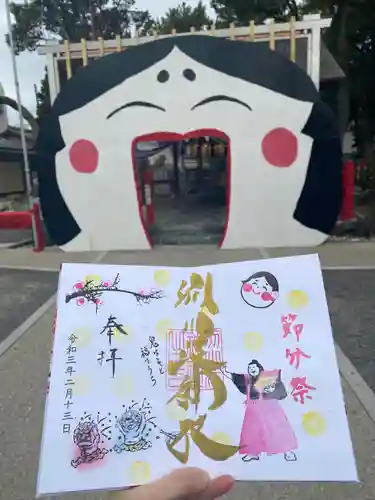 節分祭
鬼はそと
福はうち
奉拝
令和三年二月十三日